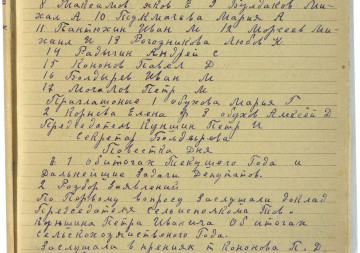 8 Максимов Яков Е 9 Булдаков Ми-
хал А 10 Подкличева Мария А
11 Пантюхин Иван М 12 Морсеев Ми-
хаил И 13 Рогозникова Любов Х
14 Радыгин Андрей С
15 Кононов Павел Д
16 Болдырев Иван М
17 Могалов Петр М
Приглашоные 1 обухова Мария Г
2 Корнева Елена Ф 3 обухов Алексей Д
Председатель Куншин Петр И
Секретар Болдырева
Повестка Дня
1 обитогах Текущего Года и
Дальнейшие Задачи Депутатов.
2 Розбор Заявлений
По Первому вопросу Заслушали доклад
Председателя Сельисполкома Тов.
Куншина Петра Ивановича Об итогах
сельскохозяйственого Года.
Заслушала в прениях т Кононова П.Д.